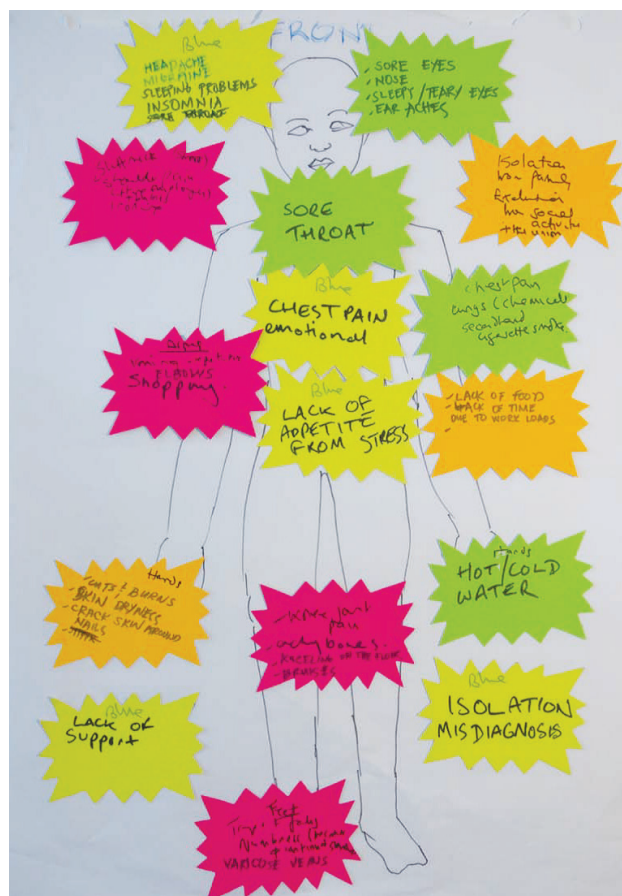 FRONT
Blue
HEADACHE
MIGRAINE
SLEEPING PROBLEMS
INSOMNIA
SORE THROAT
SORE EYES
NOSE
SLEEPY/TEARY EYES
EAR ACHES
Isolation
from family
Exclusion
from social
SORE
THROAT
Blue
CHEST PAIN
emotional
Chest pain
lungs (chemicals
secondhand
cigarette smoke
ELBOWS
Shopping.
Blue
LACK OF
APPETITE
FROM STRESS
LACK OF FOOD
LACK OF TIME
DUE TO WORK LOADS
Hands
CUTS & BURNS
SKIN DRYNESS
CRACK SKIN AROUND
NAILS
Hands
HOT/COLD
WATER
Knee joint
pain
achy bones.
KNEELING ON THE FLOOR
BRUISES
Blue
LACK OF
Support
Blue
ISOLATION
MISDIAGNOSIS
Feet
Numbness
VARICOSE VEINS